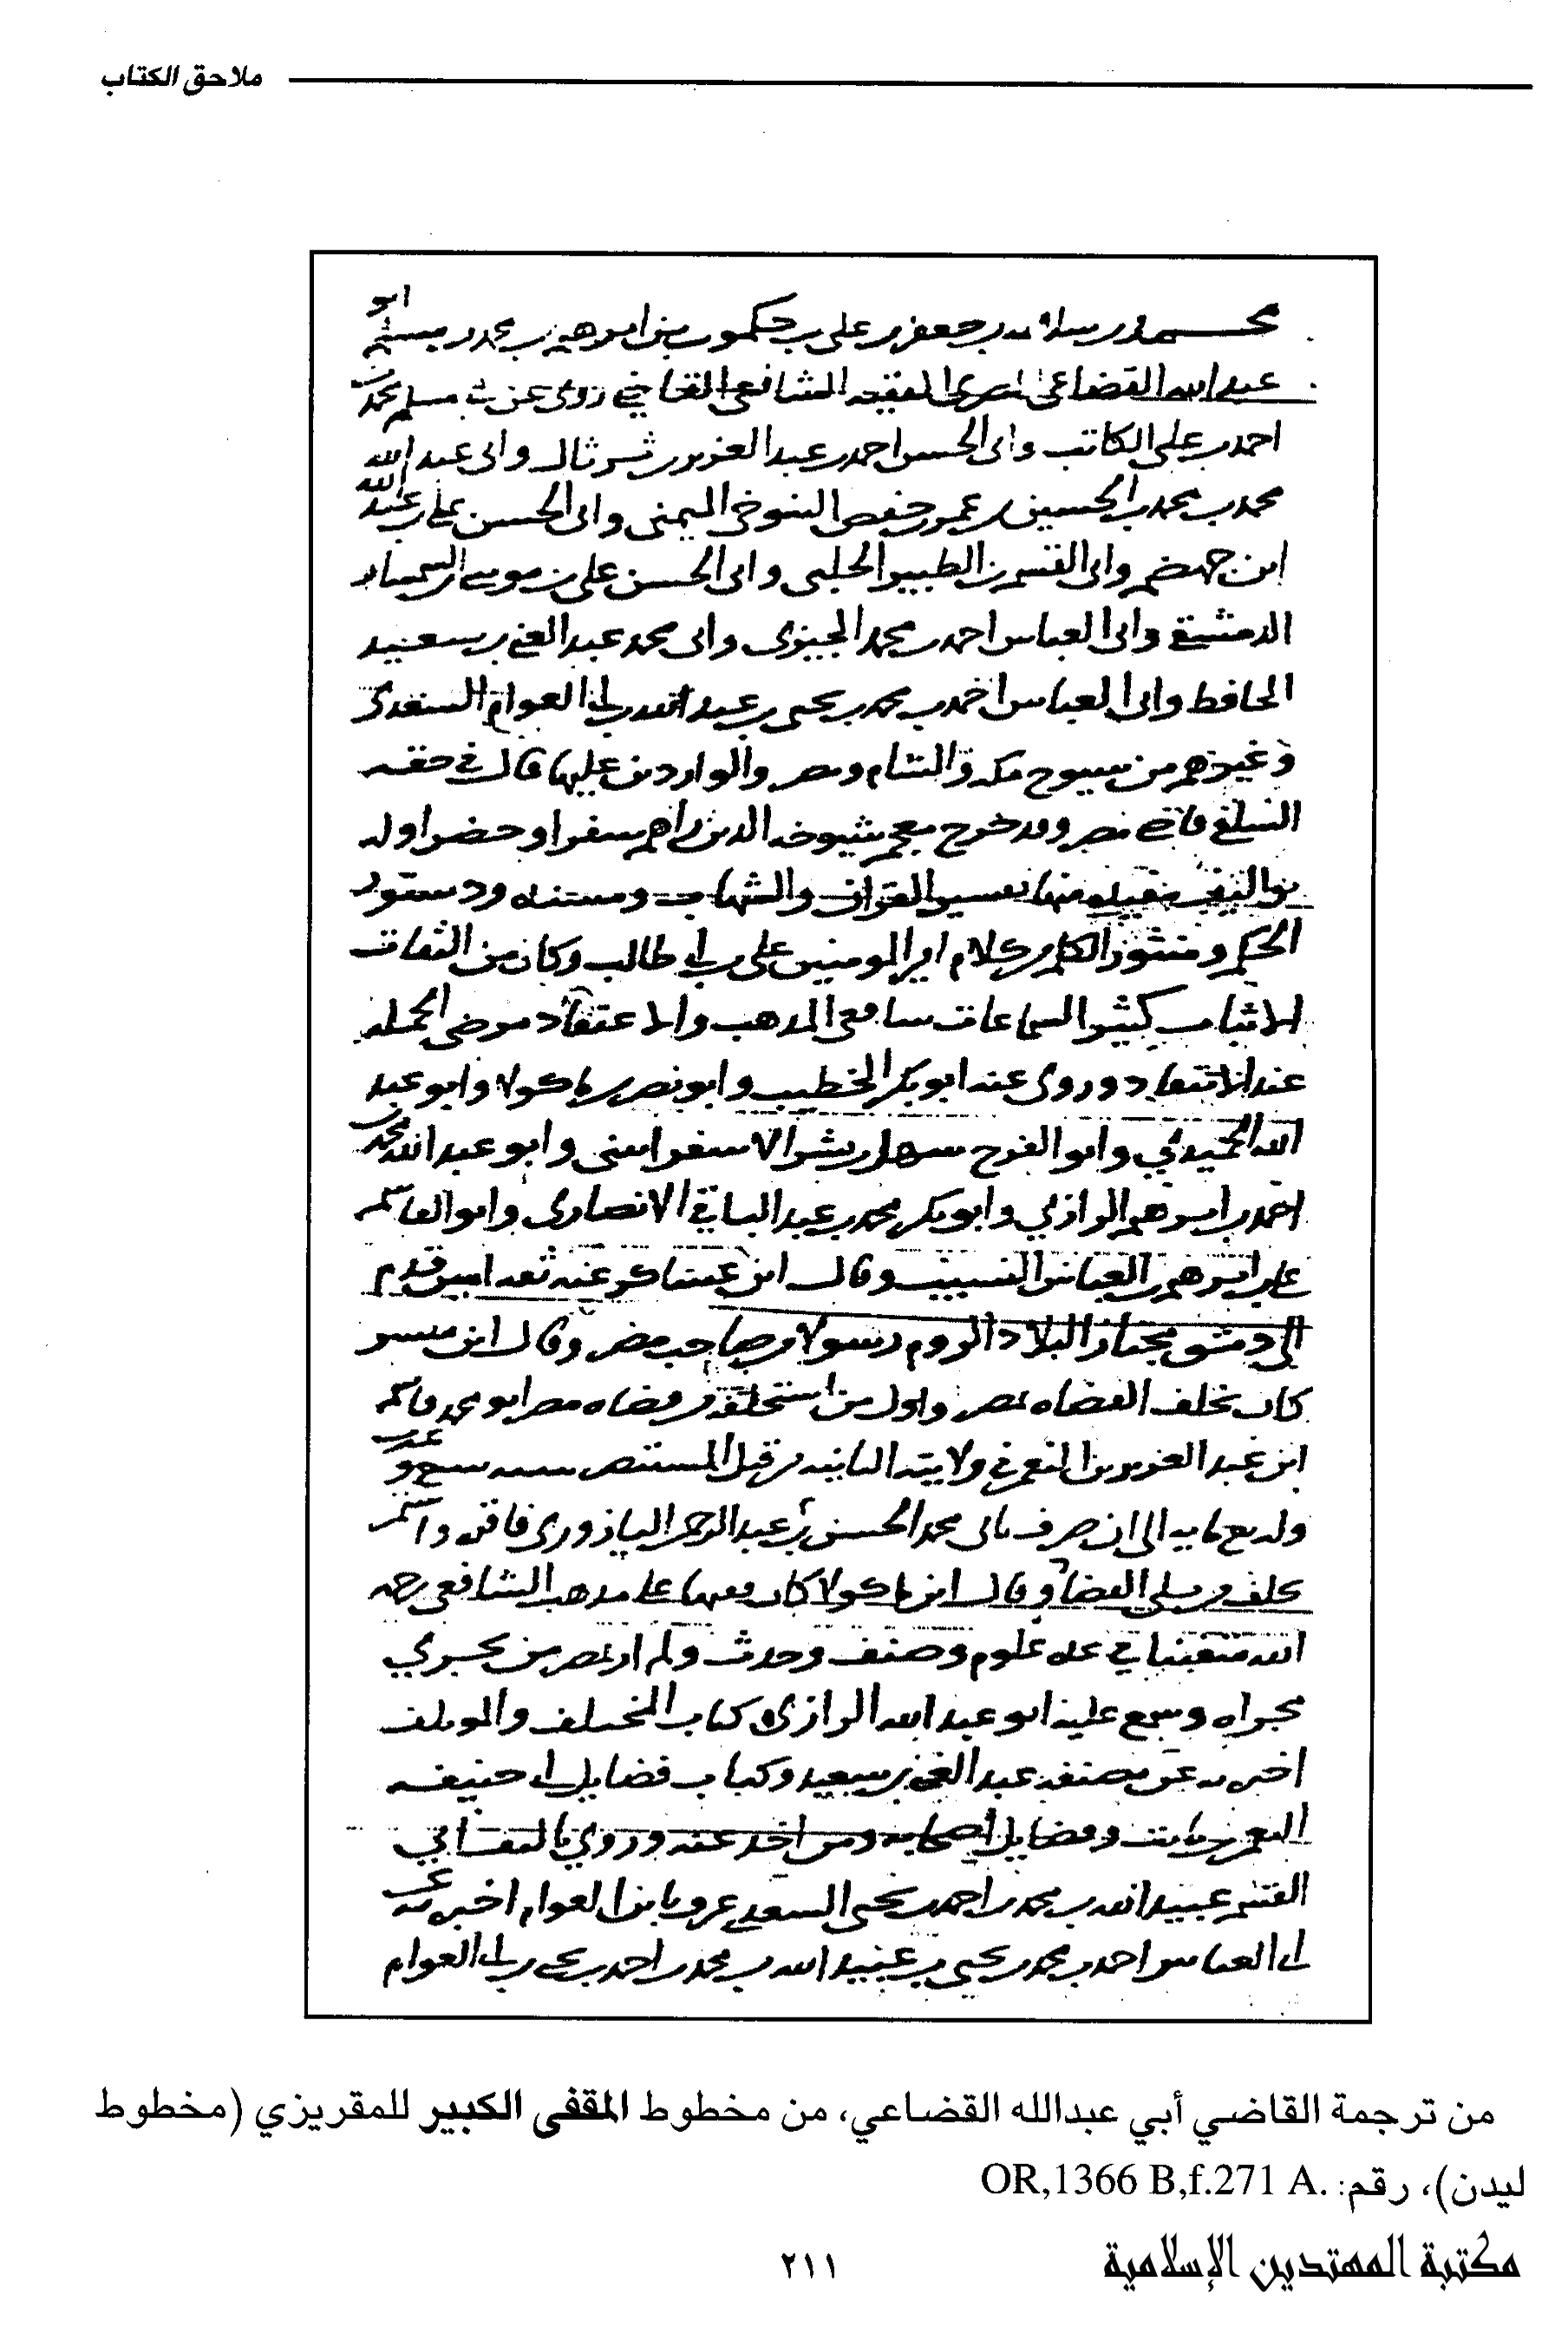 ملاحق الكتاب
محمد بن سلامه بن جعفر بن على بن حكمون بن ابرهيم بن محمد بن مسلم ابو
عبد الله القضاعى المصرى الفقيه الشافعى القاضي روى عن ابى مسلم محمد بن
احمد بن على الكاتب وابى الحسن احمد بن عبد العزيز بن ثرثال وابى عبد الله
محمد بن محمد بن الحسين بن عمر بن حفص اليمنى وابى الحسن على بن عبد الله
ابن جهضم وابى القسم بن الطبيز الحلبى وابى الحسن على بن موسى السمسار
الدمشقى وابى العباس احمد بن محمد الجيزى وابى محمد عبد الغنى بن سعيد
الحافظ وابى العباس احمد بن محمد بن يحيى بن عبد الله بن ابى العوام السعدى
وغيرهم من شيوخ مكه والشام ومصر والواردين عليها قال فى حقه
السلفى قاضى مصر وقد خرج معجم شيوخه الذين راهم سفرا وحضرا وله
تواليف مفيده منها تفسير القران والشهاب ومسنده ودستور
الحكم ومنثور الكلم من كلام امير المومنين على بن ابى طالب وكان من الثقات
الاثبات كثير السماعات شافعى المذهب والاعتقاد مرضى الجمله
عند الانتقاد وروى عنه ابو بكر الخطيب وابو نصر بن ماكولا وابو عبد
الله الحميدي وابو الفرج سهل بن بشر الاسفراينى وابو عبد الله محمد بن
احمد بن ابرهيم الرازي وابو بكر محمد بن عبد الباقى الانصارى وابو القاسم
على بن ابرهيم بن العباس النسيب وقال ابن عساكر عنه ثقه امين قدم
الى دمشق مجتازا لبلاد الروم رسولا من صاحب مصر وقال ابن ميسر
كان يخلف القضاه بمصر واول من استخلفه من قضاه مصر ابو محمد قاسم
ابن عبد العزيز بن النعمن فى ولايته الثانيه من قبل المستنصر سنه سبع وعشرين
واربع مايه الى ان صرف بابى محمد الحسن بن عبد الرحمن اليازورى فاقره واستمر
يخلف من يلى القضا وقال ابن ماكولا كان فقيها على مذهب الشافعى رحمه
الله متفننا في عده علوم وصنف وحدث ولم ار بمصر من يجري
مجراه وسمع عليه ابو عبد الله الرازى كتاب المختلف والموتلف
اخبره به عن مصنفه عبد الغنى بن سعيد وكتاب فضايل ابى حنيفه
النعمن بن ثابت وفضايل اصحابه ومن اخذ عنه وروي تاليف ابي
القسم عبيد الله بن محمد بن احمد بن يحيى السعدى عرف بابن ابى العوام اخبره به عن
ابى العباس احمد بن محمد بن يحيى بن عبيد الله بن محمد بن احمد بن يحيى بن ابى العوام
من ترجمة القاضي أبي عبدالله القضاعي، من مخطوط المقفى الكبير للمقريزي (مخطوط
ليدن)، رقم: OR,1366 B,f.271 A.
مكتبة المهتدين الإسلامية
٢١١